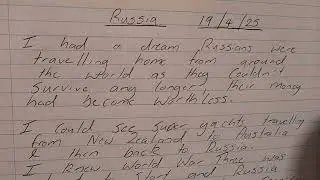 Russia 19/4/25
I had a dream Russians were
travelling home from around
the world as they couldn't
survive any longer, their money
had become worthless.
I could see super yachts travelling
from New Zealand to Australia
& then back to Russia.
I knew World War Three was
start and Russia